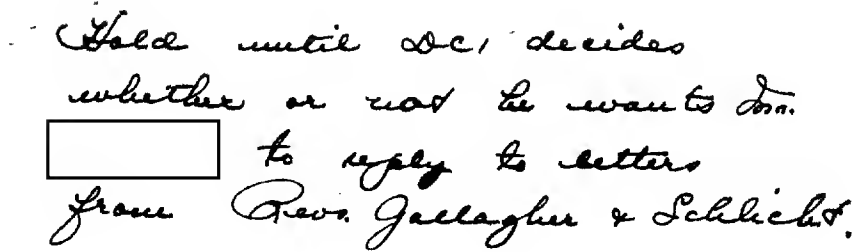 Hold until DCI decides
whether or not he wants Mr.
to reply to letters
from Revs. Gallagher & Schlicht.